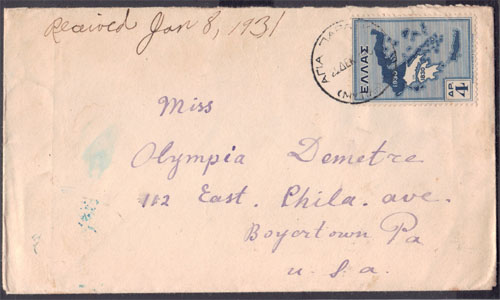 Received Jan 8, 1931
ΑΓΙΑ ΠΑΡΑ
ΕΛΛΑΣ
1830
1930
ΔΡ. 4
Miss
Olympia Demetre
112 East. Phila. ave.
Boyertown Pa
U.S.a.